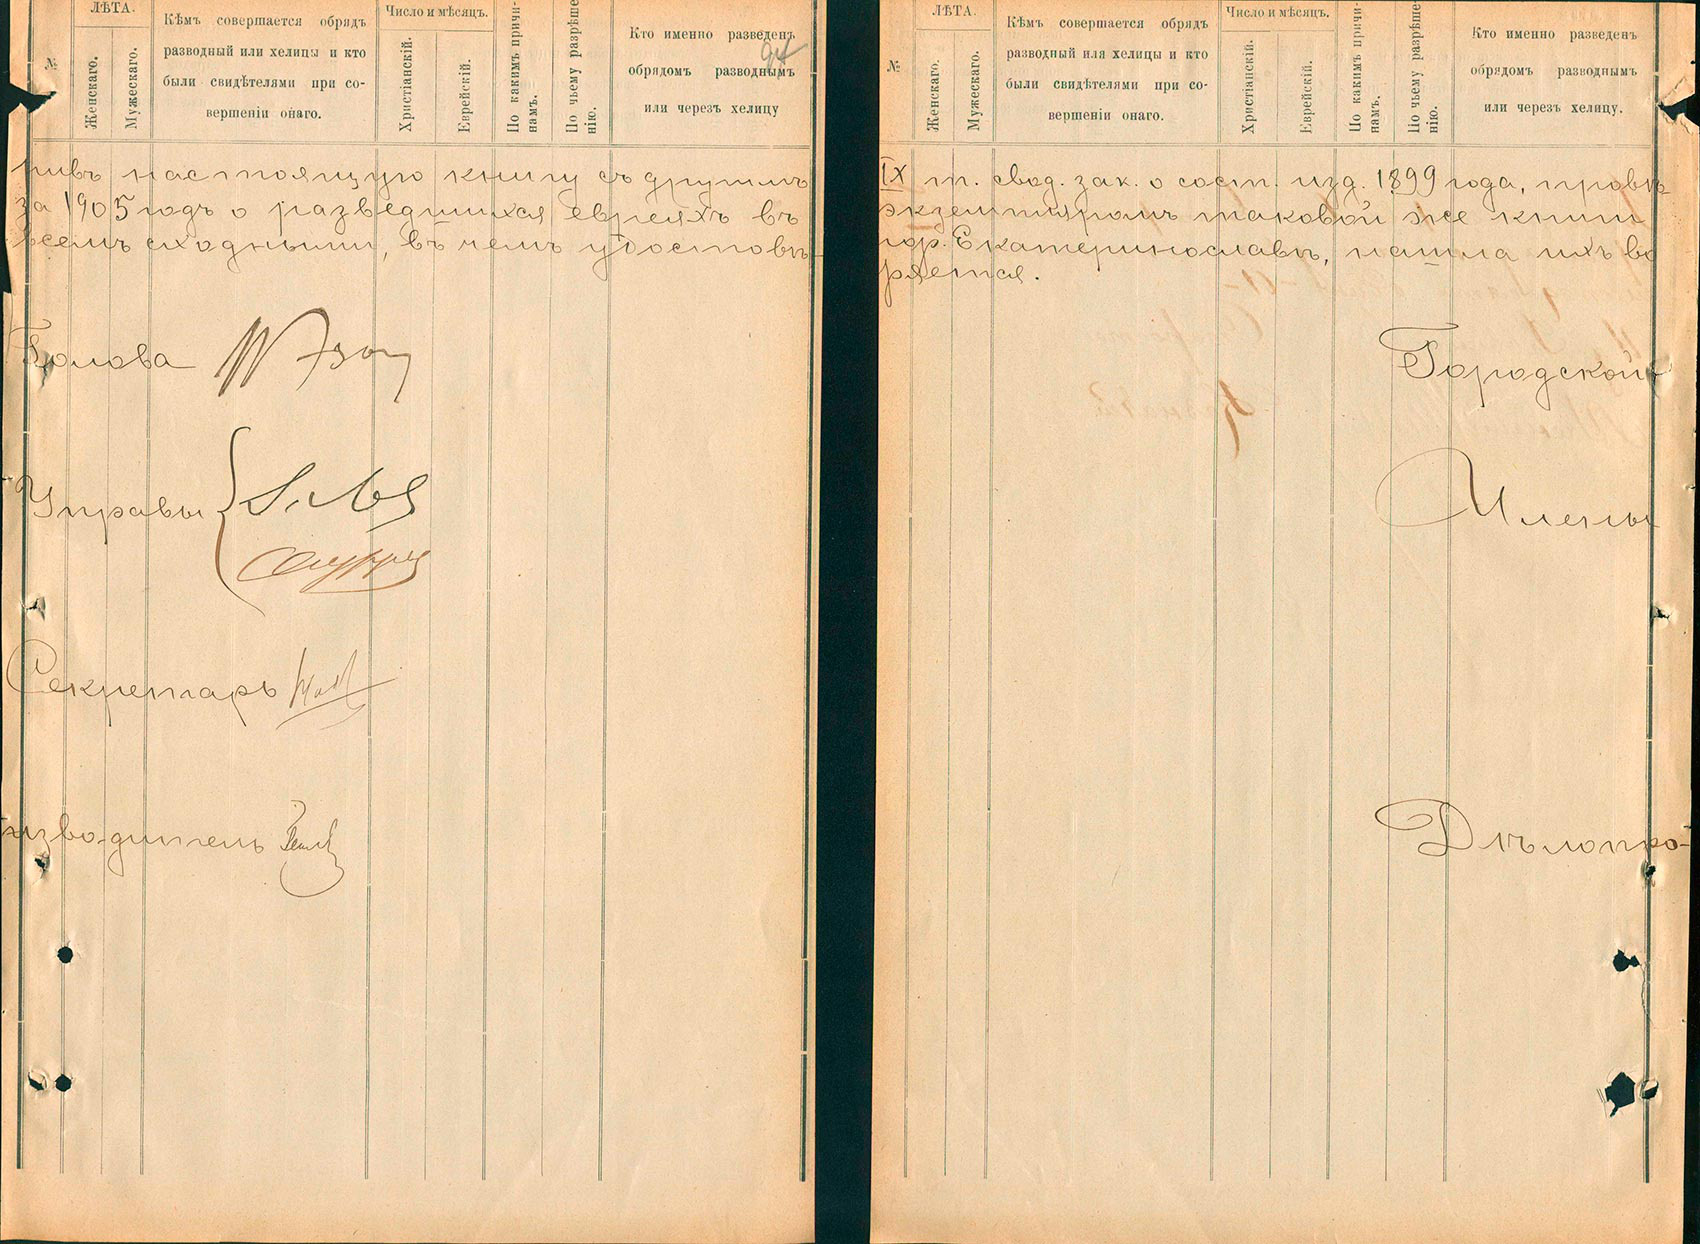 №
ЛѢТА.
Женскаго.
Мужескаго.
Кѣмъ совершается обрядъ
разводный или хелицы и кто
были свидѣтелями при со-
вершеніи онаго.
Число и мѣсяцъ.
Христіанскій.
Еврейскій.
По какимъ причи-
намъ.
По чьему разрѣше-
нію.
Кто именно разведенъ
обрядомъ разводнымъ
или черезъ хелицу
94
ривъ настоящую книгу съ другимъ
за 1905 годъ о разведшихся евреяхъ въ
всемъ сходными, въ чемъ удостовѣ-
Голова
Управы
Секретарь
изводитель
№
ЛѢТА.
Женскаго.
Мужескаго.
Кѣмъ совершается обрядъ
разводный или хелицы и кто
были свидѣтелями при со-
вершеніи онаго.
Число и мѣсяцъ.
Христіанскій.
Еврейскій.
По какимъ причи-
намъ.
По чьему разрѣше-
нію.
Кто именно разведенъ
обрядомъ разводнымъ
или черезъ хелицу.
IX т. свод. зак. о сост. изд. 1899 года, провѣ-
экземпляромъ таковой же книги
гор. Екатеринославѣ, нашла ихъ во
ряется.
Городской
Члены
Дѣлопро-